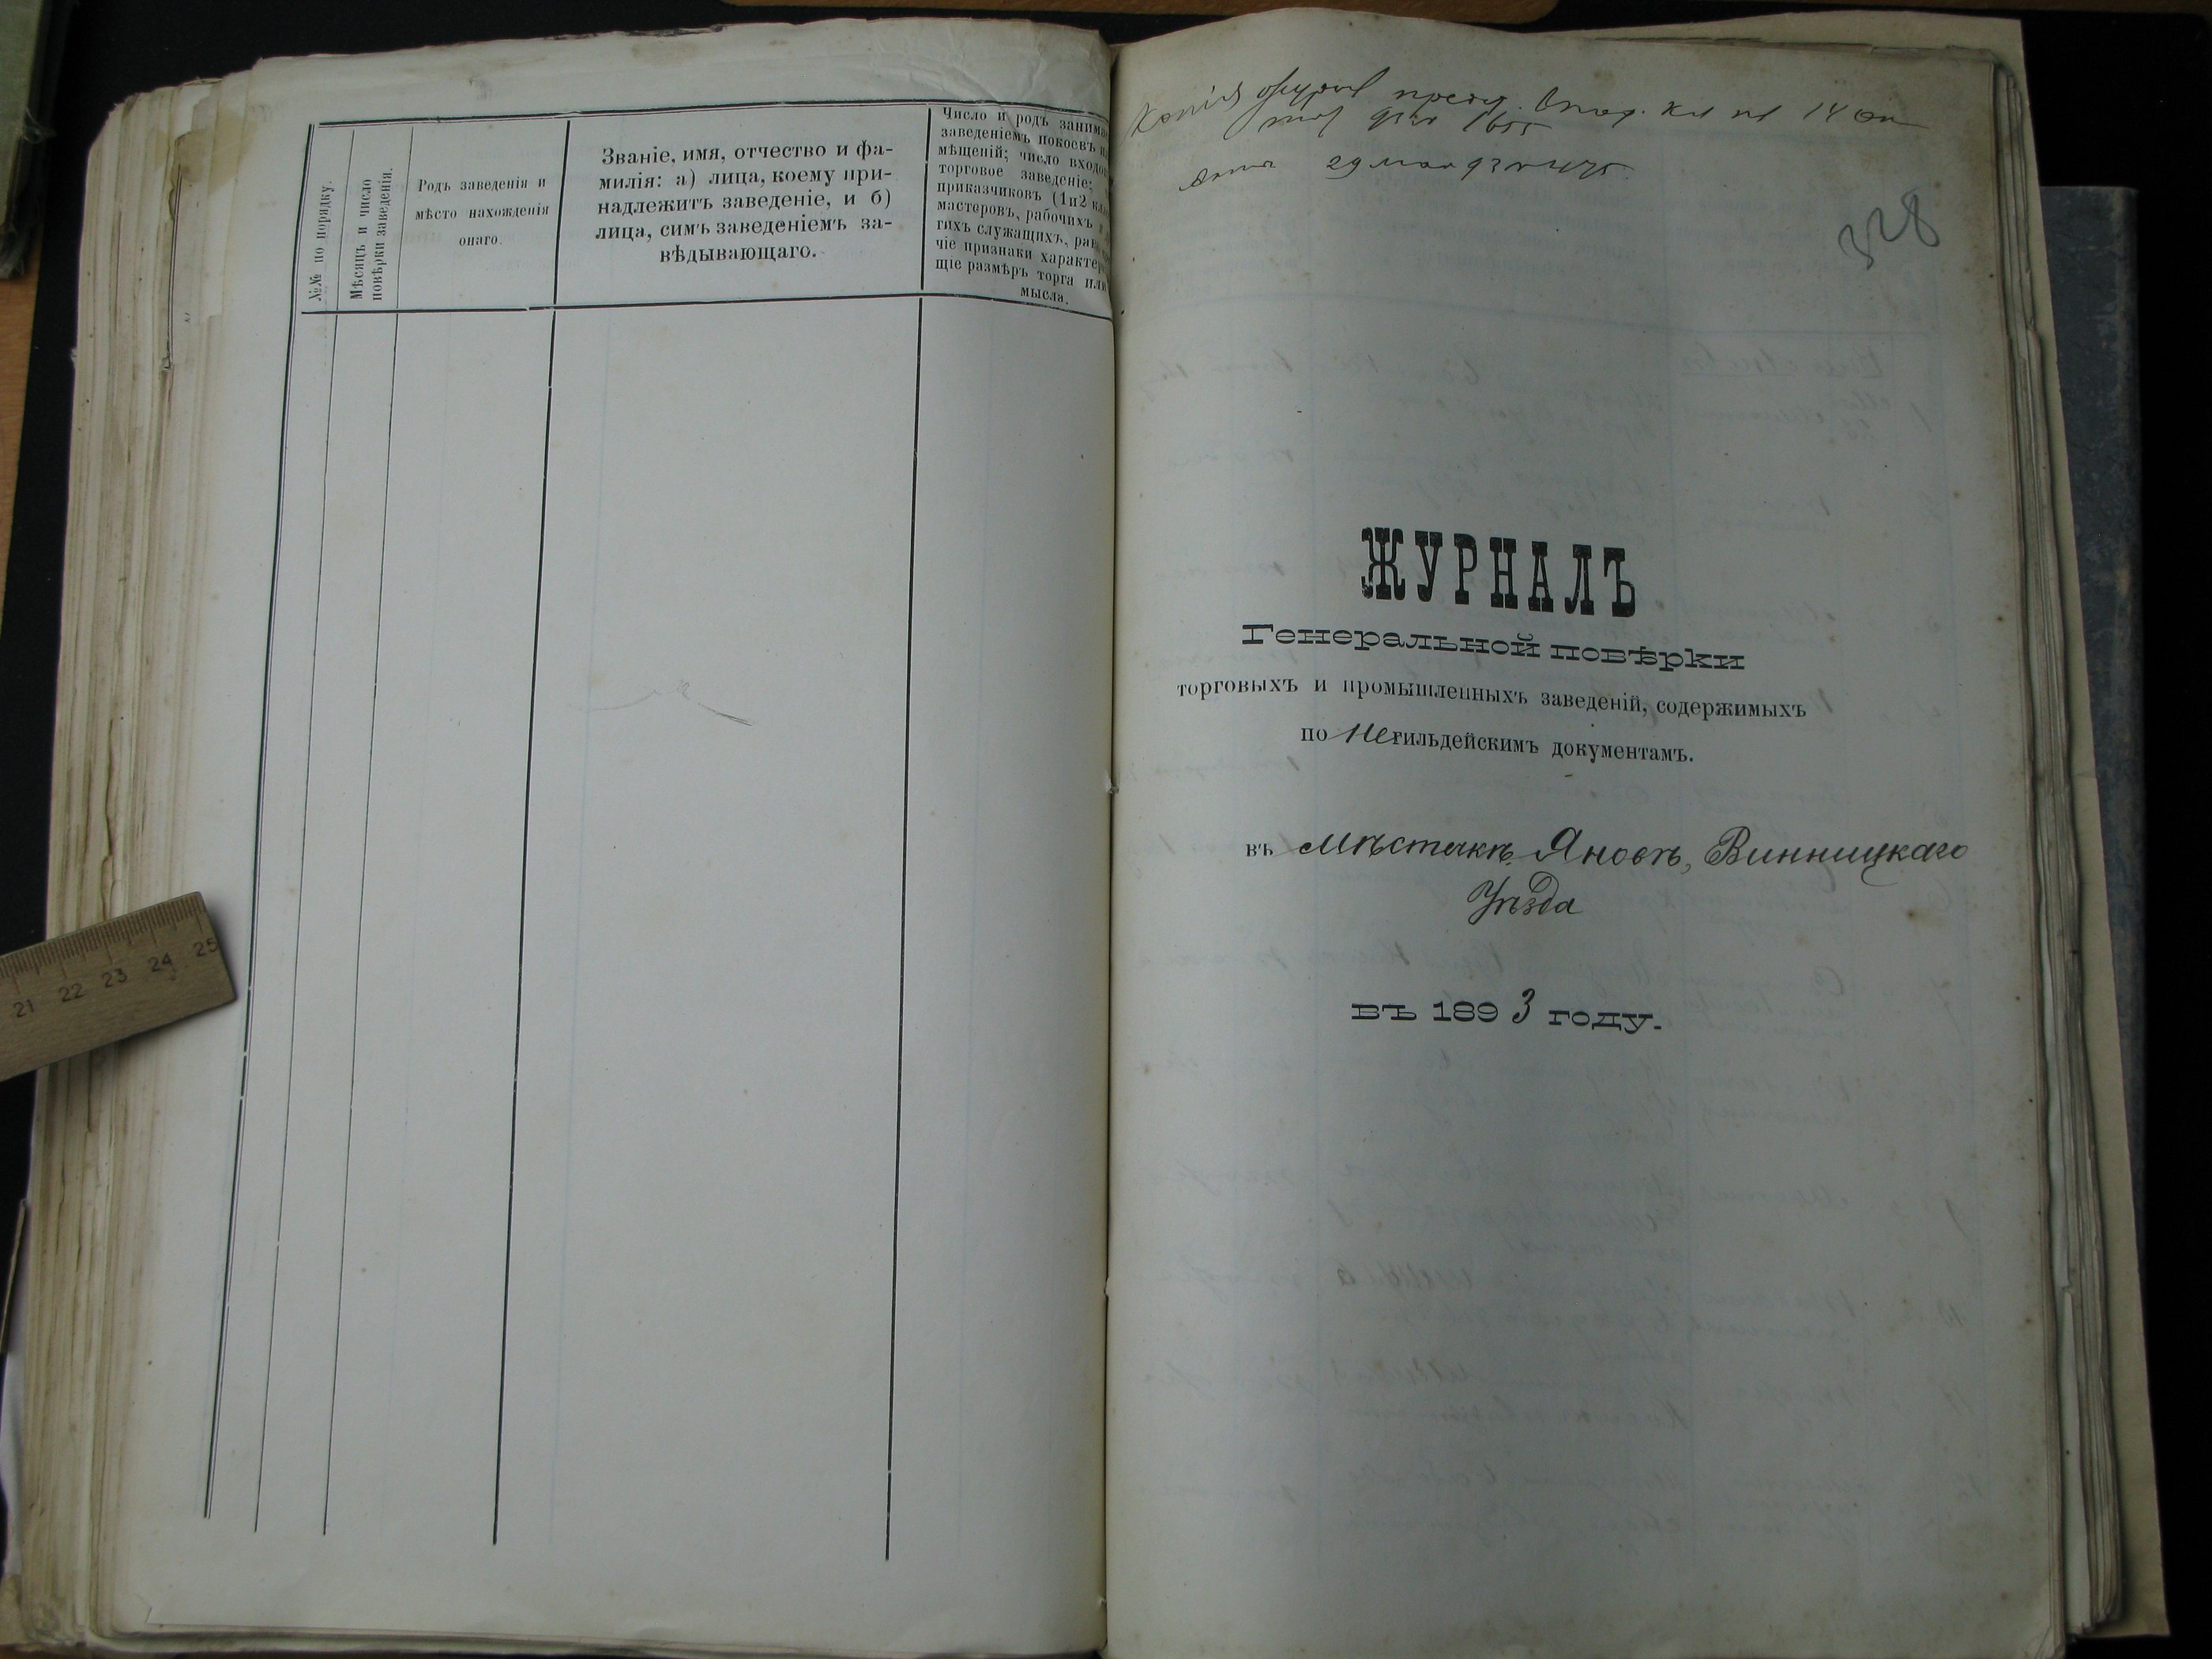 №№ по порядку.
Мѣсяцъ и число
повѣрки заведенія.
Родъ заведенія и
мѣсто нахожденія
онаго.
Званіе, имя, отчество и фа-
милія: а) лица, коему при-
надлежитъ заведеніе, и б)
лица, симъ заведеніемъ за-
вѣдывающаго.
Число и родъ занима
заведеніемъ покоевъ и
мѣщеній; число входо
торговое заведеніе;
приказчиковъ (1 и 2 кл
мастеровъ, рабочихъ и
гихъ служащихъ, рав
чіе признаки характе
щіе размѣръ торга или
мысла.
Копія
14
29 мая 93
328
ЖУРНАЛЪ
Генеральной повѣрки
торговыхъ и промышленныхъ заведеній, содержимыхъ
по негильдейскимъ документамъ.
въ мѣстечкѣ Яновѣ, Винницкаго
Уѣзда
въ 1893 году.
21 22 23 24 25